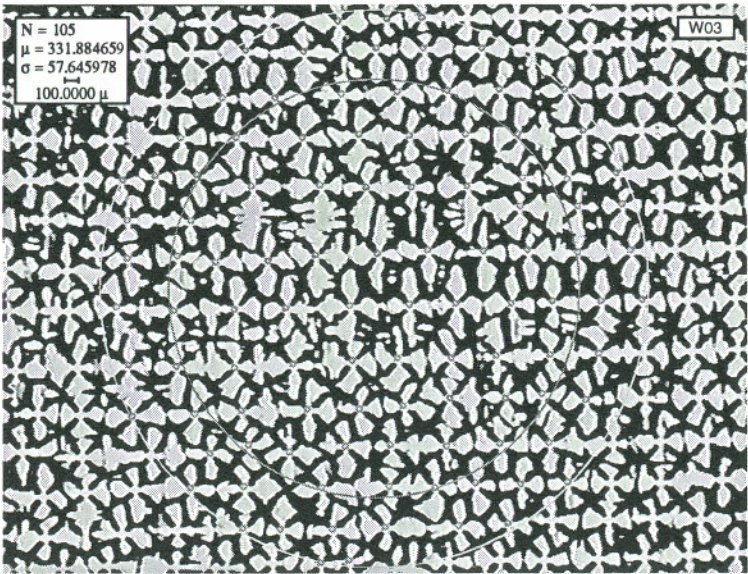 N = 105
μ = 331.884659
σ = 57.645978
100.0000 μ
W03